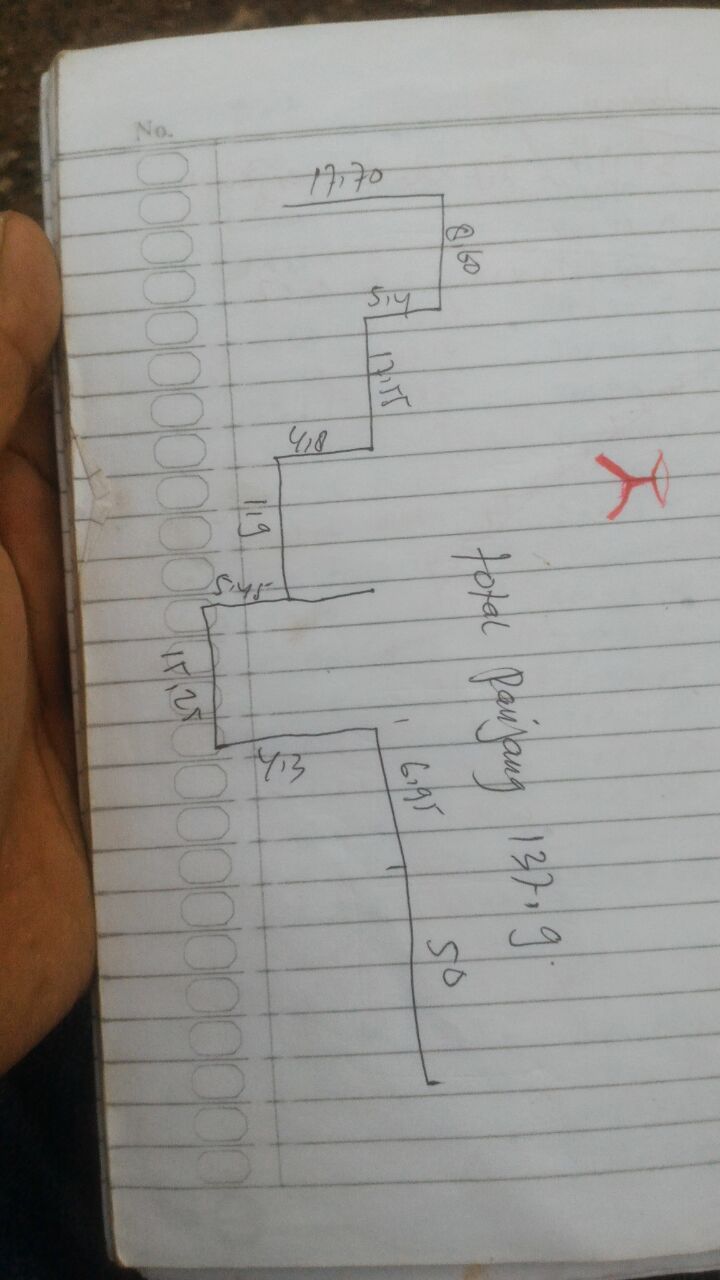 No.
17,70
8,60
5,4
17,55
4,8
1,9
5,45
15,25
4,3
6,95
50
total panjang 137,9.